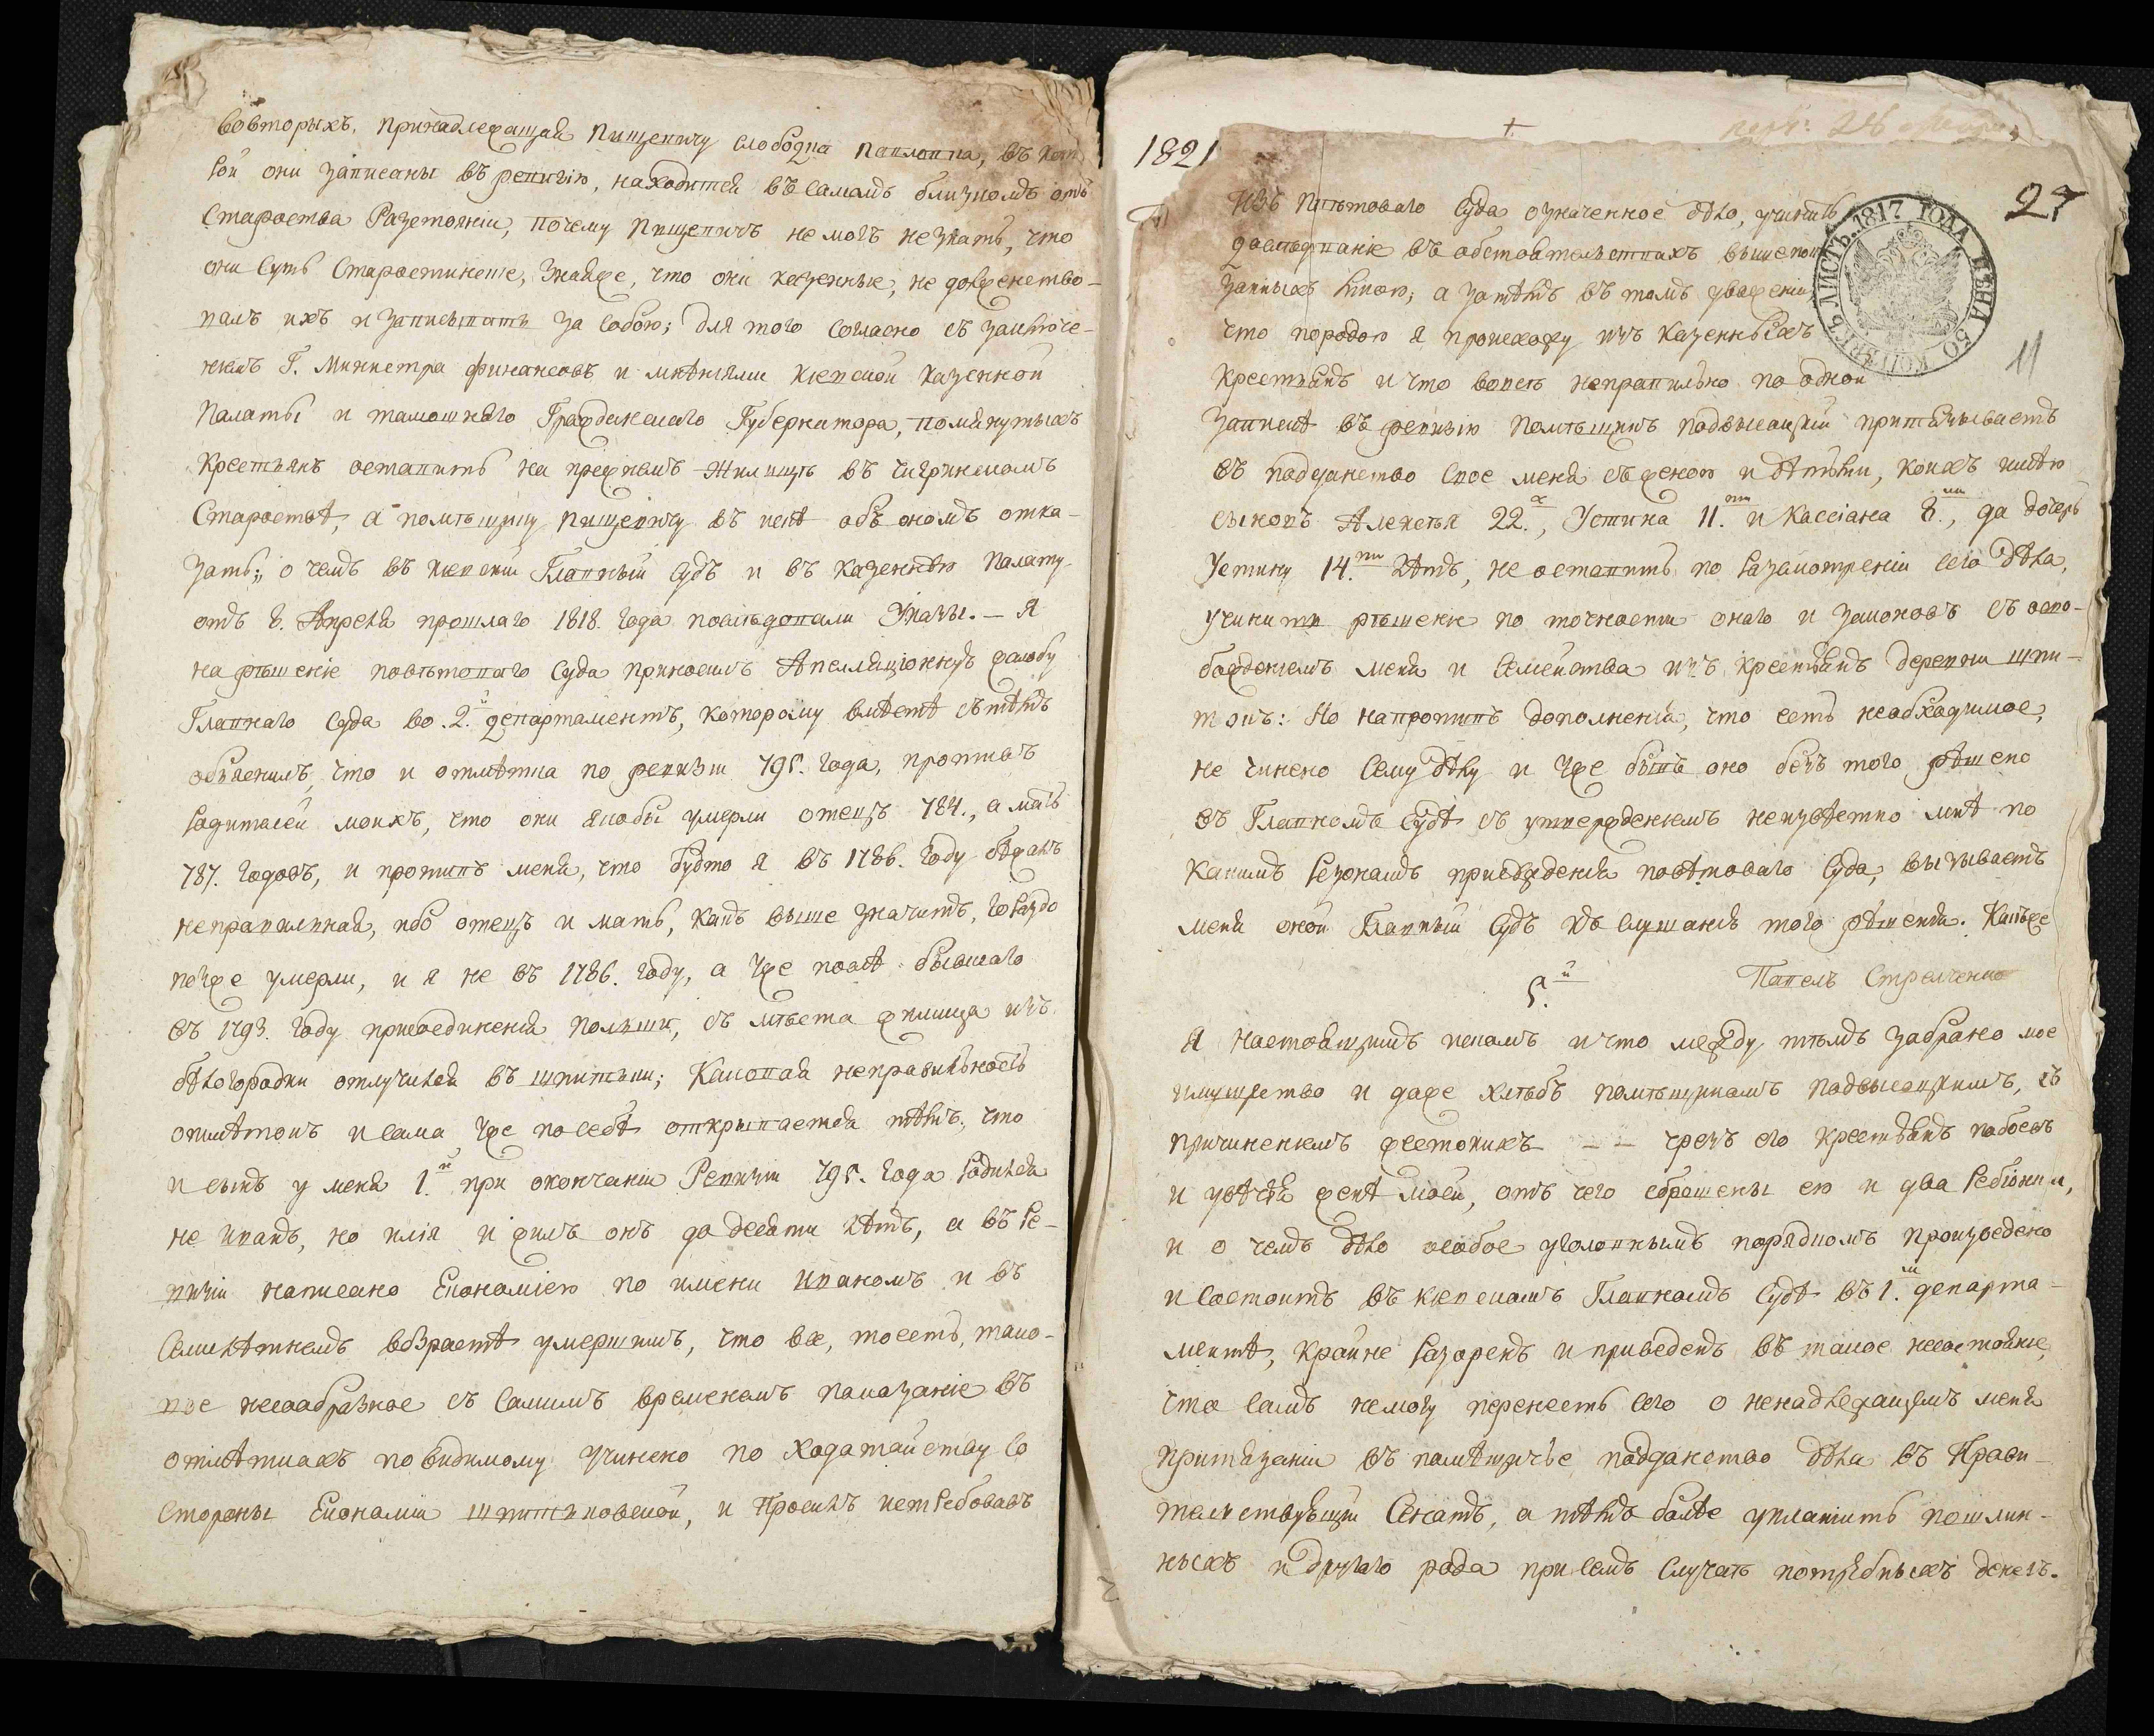 Вовторыхъ, принадлежащая Пищевичу слободка Павловка, въ кото
рой они записаны въ ревизію, находится въ самомъ близкомъ отъ
Староства Разстояніи, почему Пищевичъ не могъ незнать, что
они суть Старостинские, Зная же, что они казенные, не долженство-
валъ ихъ и записывать за собою; для того согласно съ заключе-
ніемъ Г. Министра финансовъ и мнѣніями Кіевской казенной
Палаты и тамошняго Гражданскаго Губернатора, помянутыхъ
крестьянъ оставить на прежнемъ Жилищѣ въ Чигринскомъ
Староствѣ, а помѣщику Пищевичу въ искѣ объ ономъ отка-
зать; о чемъ въ Кіевскій Главный Судъ и въ казенную Палату
отъ 8. Апреля прошлаго 1818. года последовали Указы. — Я
на рѣшеніе повѣтоваго Суда приносилъ Апелляціонную жалобу
Главнаго Суда во 2.й департаментъ, которому вмѣстѣ съ тѣмъ
объяснилъ, что и отмѣтка по ревизіи 795. года, противъ
родителей моихъ, что они якобы умерли отецъ 784., а мать
787. годовъ, и противъ меня, что будто я въ 1786. году бѣжалъ
неправильная, ибо отецъ и мать, какъ выше значитъ, гораздо
позже умерли, и я не въ 1786. году, а уже послѣ бывшаго
въ 1793. году присоединенія Польши, съ мѣста жилища изъ
бѣлогородки отлучился въ шпитьки; Каковая неправильность
отмѣтокъ и сама уже по себѣ открывается тѣмъ, что
и сынъ у меня 1.й при окончаніи Ревизіи 795. года родился
не Иванъ, но илія и жилъ онъ до десяти лѣтъ, а въ ре-
визіи написано Економіею по имени Иваномъ и въ
семилѣтнемъ возрастѣ умершимъ, что все, тоесть, тако-
вое несообразное съ самимъ временемъ показаніе въ
отмѣткахъ повидимому учинено по ходатайству со
стороны Економіи шпитьковской, и Просилъ истребовавъ
1821
27
11
изъ Повѣтоваго Суда означенное дѣло, учинить
дослѣдованіе въ обстоятельствахъ вышепока
занныхъ мною; а затѣмъ въ томъ уваженіи,
что породою я происхожу изъ казенныхъ
крестьянъ и что вовсе неправильно по одной
записѣ въ ревизію помѣщикъ Подвысоцкій притязываетъ
въ подданство свое меня съ женою и дѣтьми, коихъ имѣю
сыновъ Алексѣя 22.х, Устина 11.ти и Кассіана 8.ми, да дочерь
Устину 14.ти лѣтъ, не оставить по разсмотреніи сего дѣла,
учинить рѣшеніе по точности онаго и законовъ съ осво-
божденіемъ меня и семейства изъ крестьянъ деревни шпи-
токъ: Но напротивъ дополненія, что есть необходимое,
не чинено сему дѣлу и уже бытъ оно безъ того рѣшено
въ Главномъ Судѣ съ утвержденіемъ неизвѣстно мнѣ по
какимъ резонамъ присужденія повѣтоваго Суда, вызываетъ
меня оной Главный Судъ къ слушанію того рѣшенія. Какъ же
5.й
Павелъ Стрелченко
Я настоящимъ искомъ и что между тѣмъ забрано мое
имущество и даже хлѣбъ помѣщикомъ Подвысоцкимъ, съ
причиненіемъ жестокихъ — — чрезъ его крестьянъ побоевъ
и увѣчья женѣ моей, отъ чего сброшены ею и два ребіонки,
и о чемъ дѣло особое уголовнымъ порядкомъ произведено
и состоитъ въ Кіевскомъ Главномъ Судѣ въ 1.м департа-
ментѣ, крайне разоренъ и приведенъ въ такое несостояніе,
что самъ немогу перенесть сего о ненадлежащемъ меня
притязаніи въ помѣщичье подданство дѣла въ Прави-
тельствующій Сенатъ, а тѣмъ болѣе уплатить пошлин-
ныхъ и другаго рода при семъ случаѣ потребныхъ денегъ.
ЛИСТЪ. 1817 ГОДА ЦѢНА 50 КОПѢЕКЪ